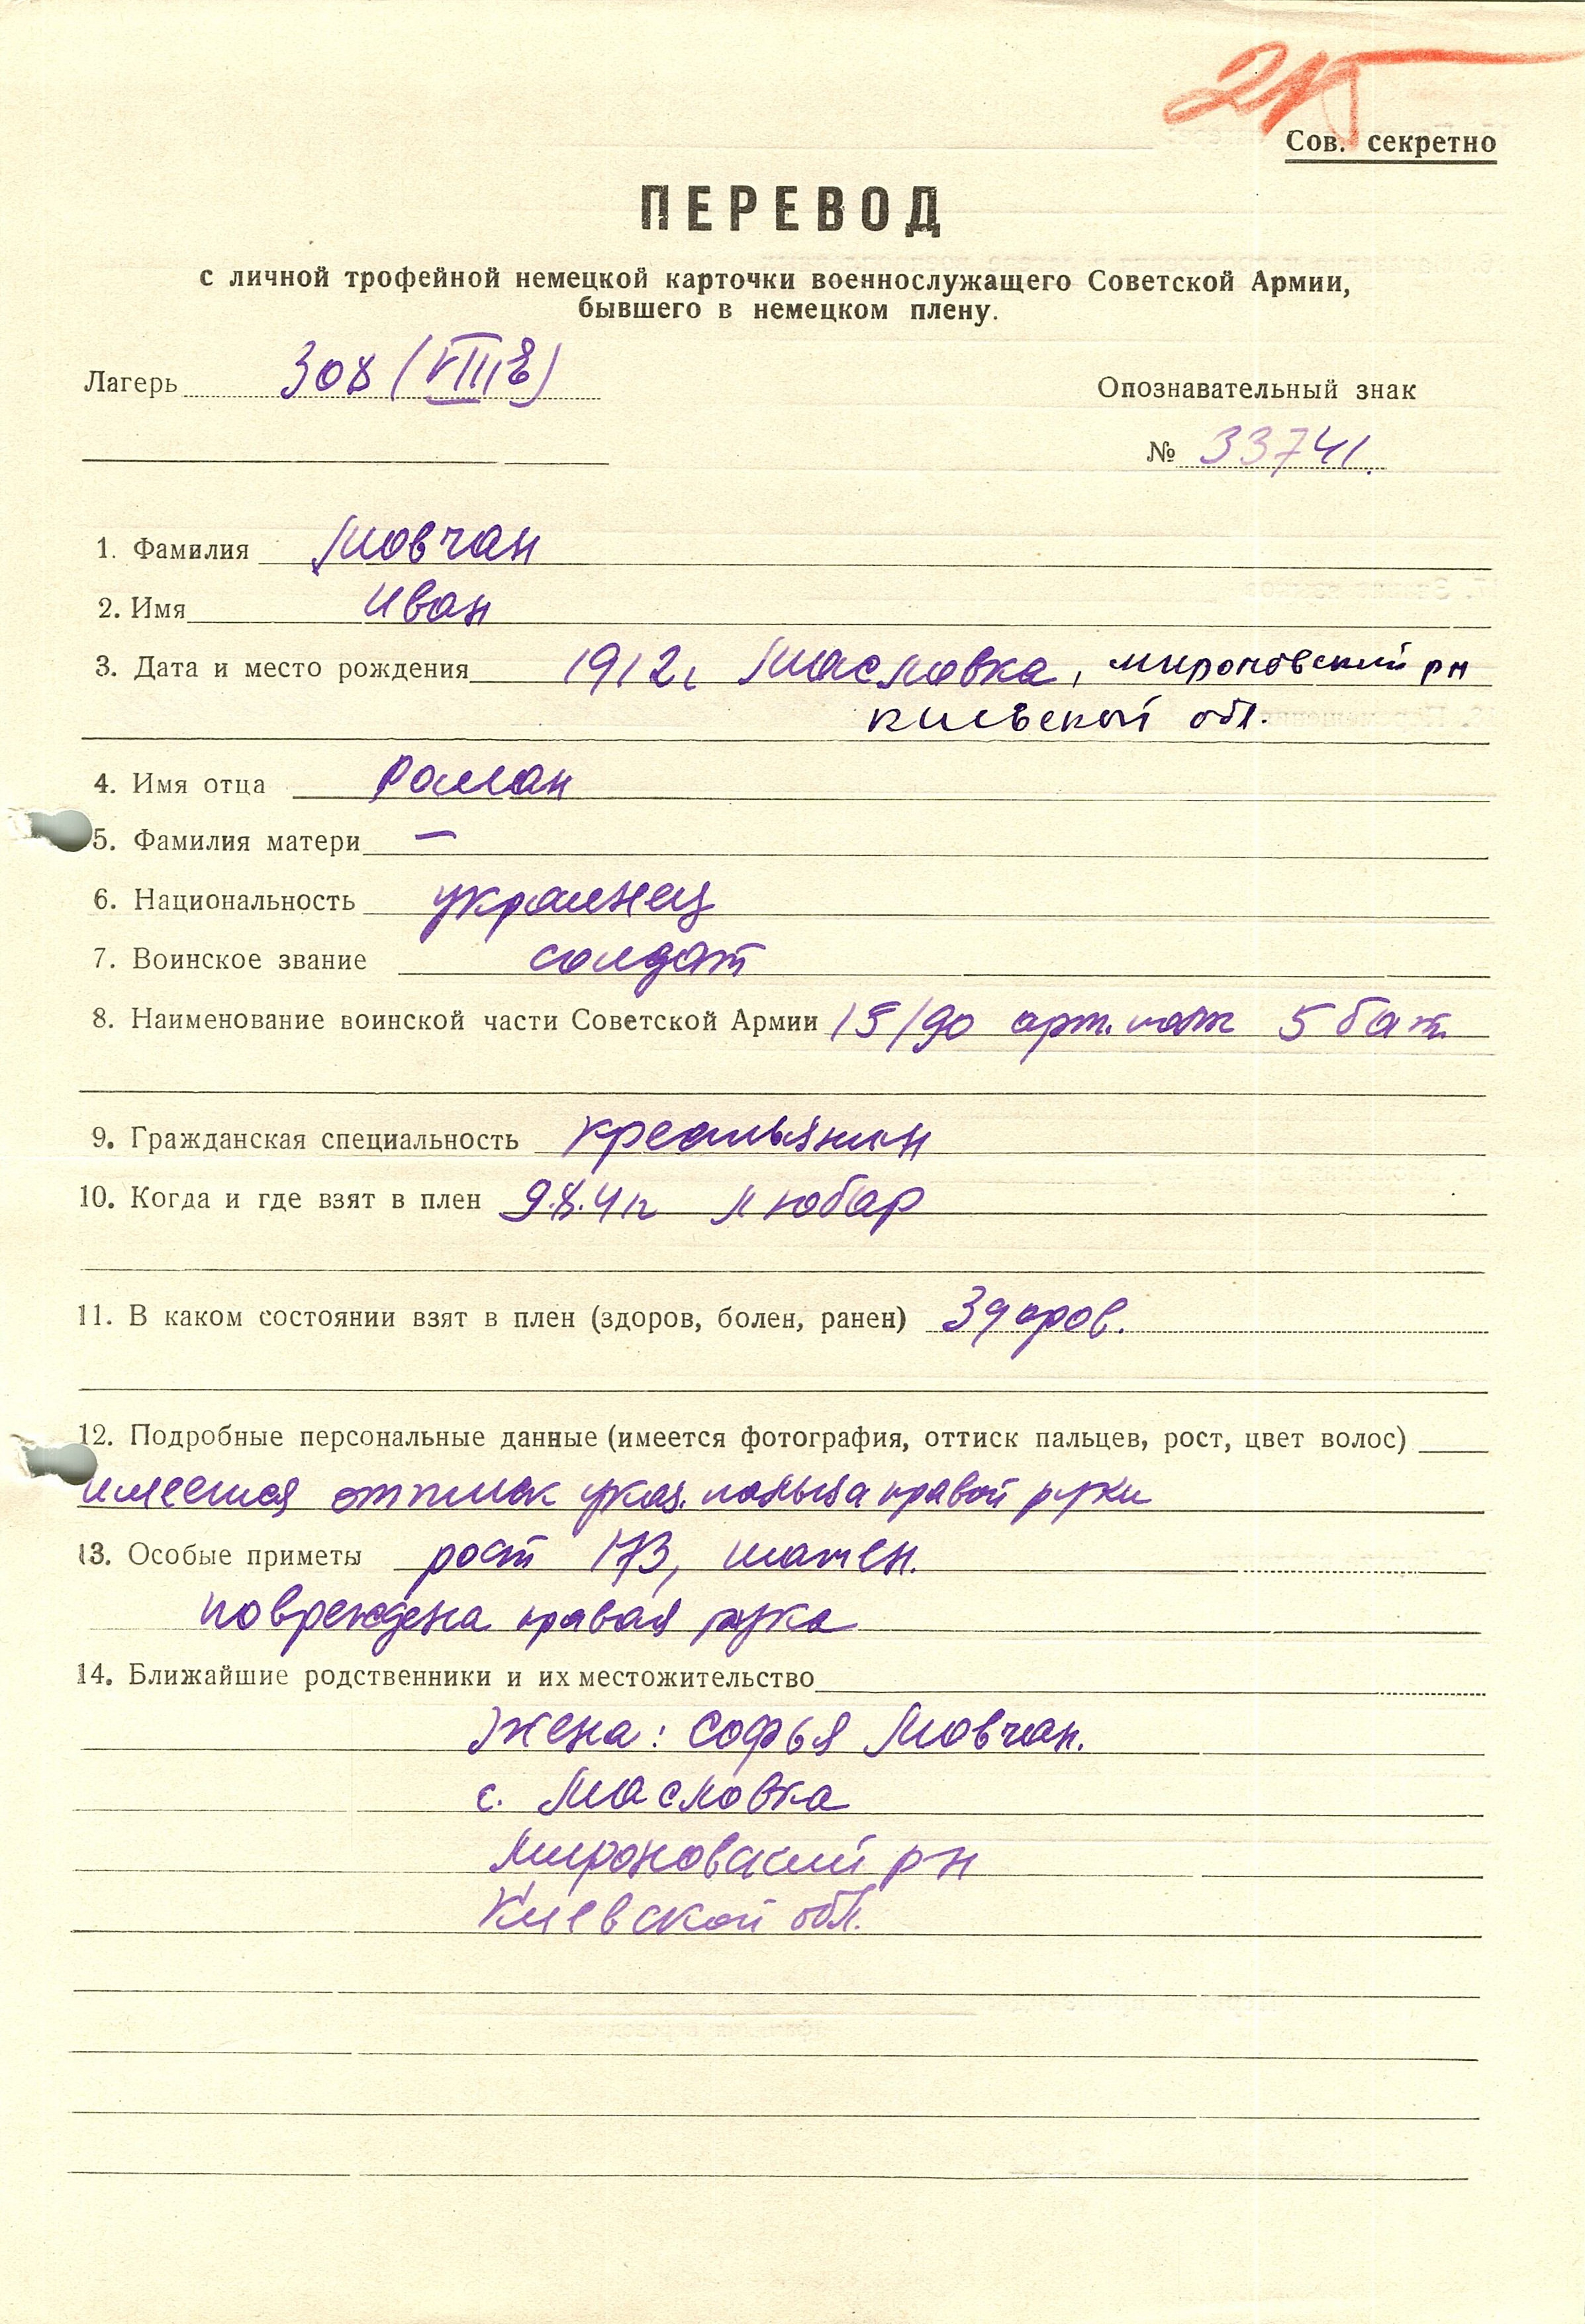 215
Сов. секретно
ПЕРЕВОД
с личной трофейной немецкой карточки военнослужащего Советской Армии,
бывшего в немецком плену.
Лагерь 308 (VIIIE)
Опознавательный знак
№ 33741.
1. Фамилия Мовчан
2. Имя Иван
3. Дата и место рождения 1912г Масловка, мироновский рн
киевской обл.
4. Имя отца Роман
5. Фамилия матери —
6. Национальность украинец
7. Воинское звание солдат
8. Наименование воинской части Советской Армии 15/90 арт. полк 5 бат.
9. Гражданская специальность крестьянин
10. Когда и где взят в плен 9.8.41г Любар
11. В каком состоянии взят в плен (здоров, болен, ранен) Здоров.
12. Подробные персональные данные (имеется фотография, оттиск пальцев, рост, цвет волос)
имеется оттиск указ. пальца правой руки
13. Особые приметы рост 173, шатен.
повреждена правая рука
14. Ближайшие родственники и их местожительство
Жена: Софья Мовчан.
с. Масловка
Мироновский рн
Киевской обл.